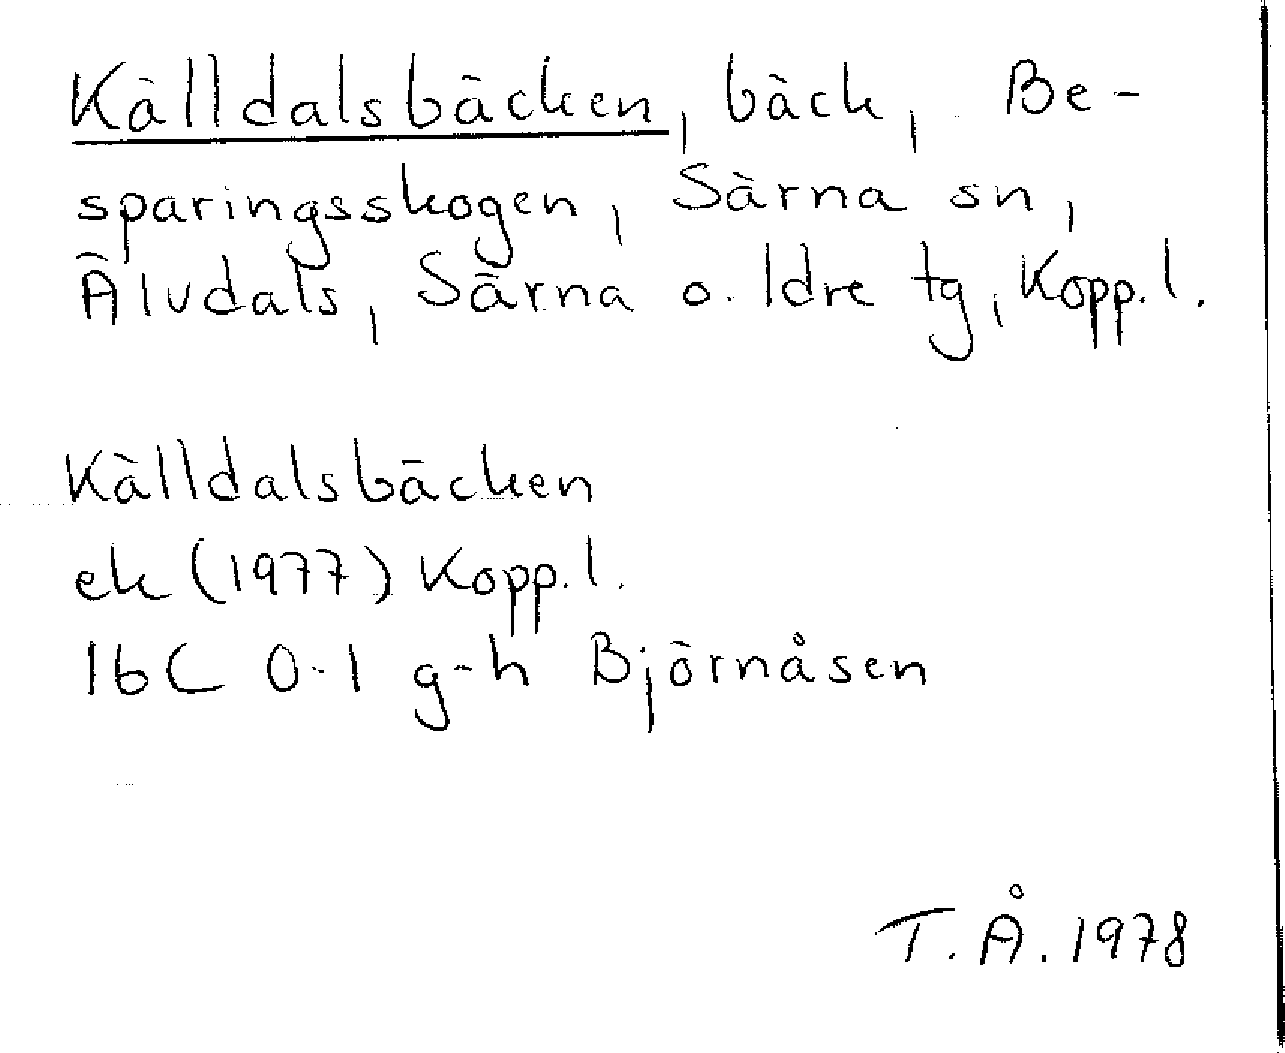 Källdalsbäcken, bäck, Be-
sparingsskogen, Särna sn,
Älvdals, Särna o. Idre tg, Kopp. l.
Källdalsbäcken
ek (1977) Kopp. l.
16C 0-1 g-h Björnåsen
T. Å. 1978